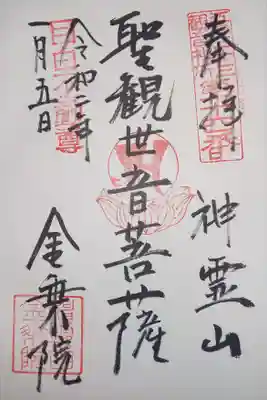 奉拝
神霊山
聖観世音菩薩
令和二年
一月五日
金乗院